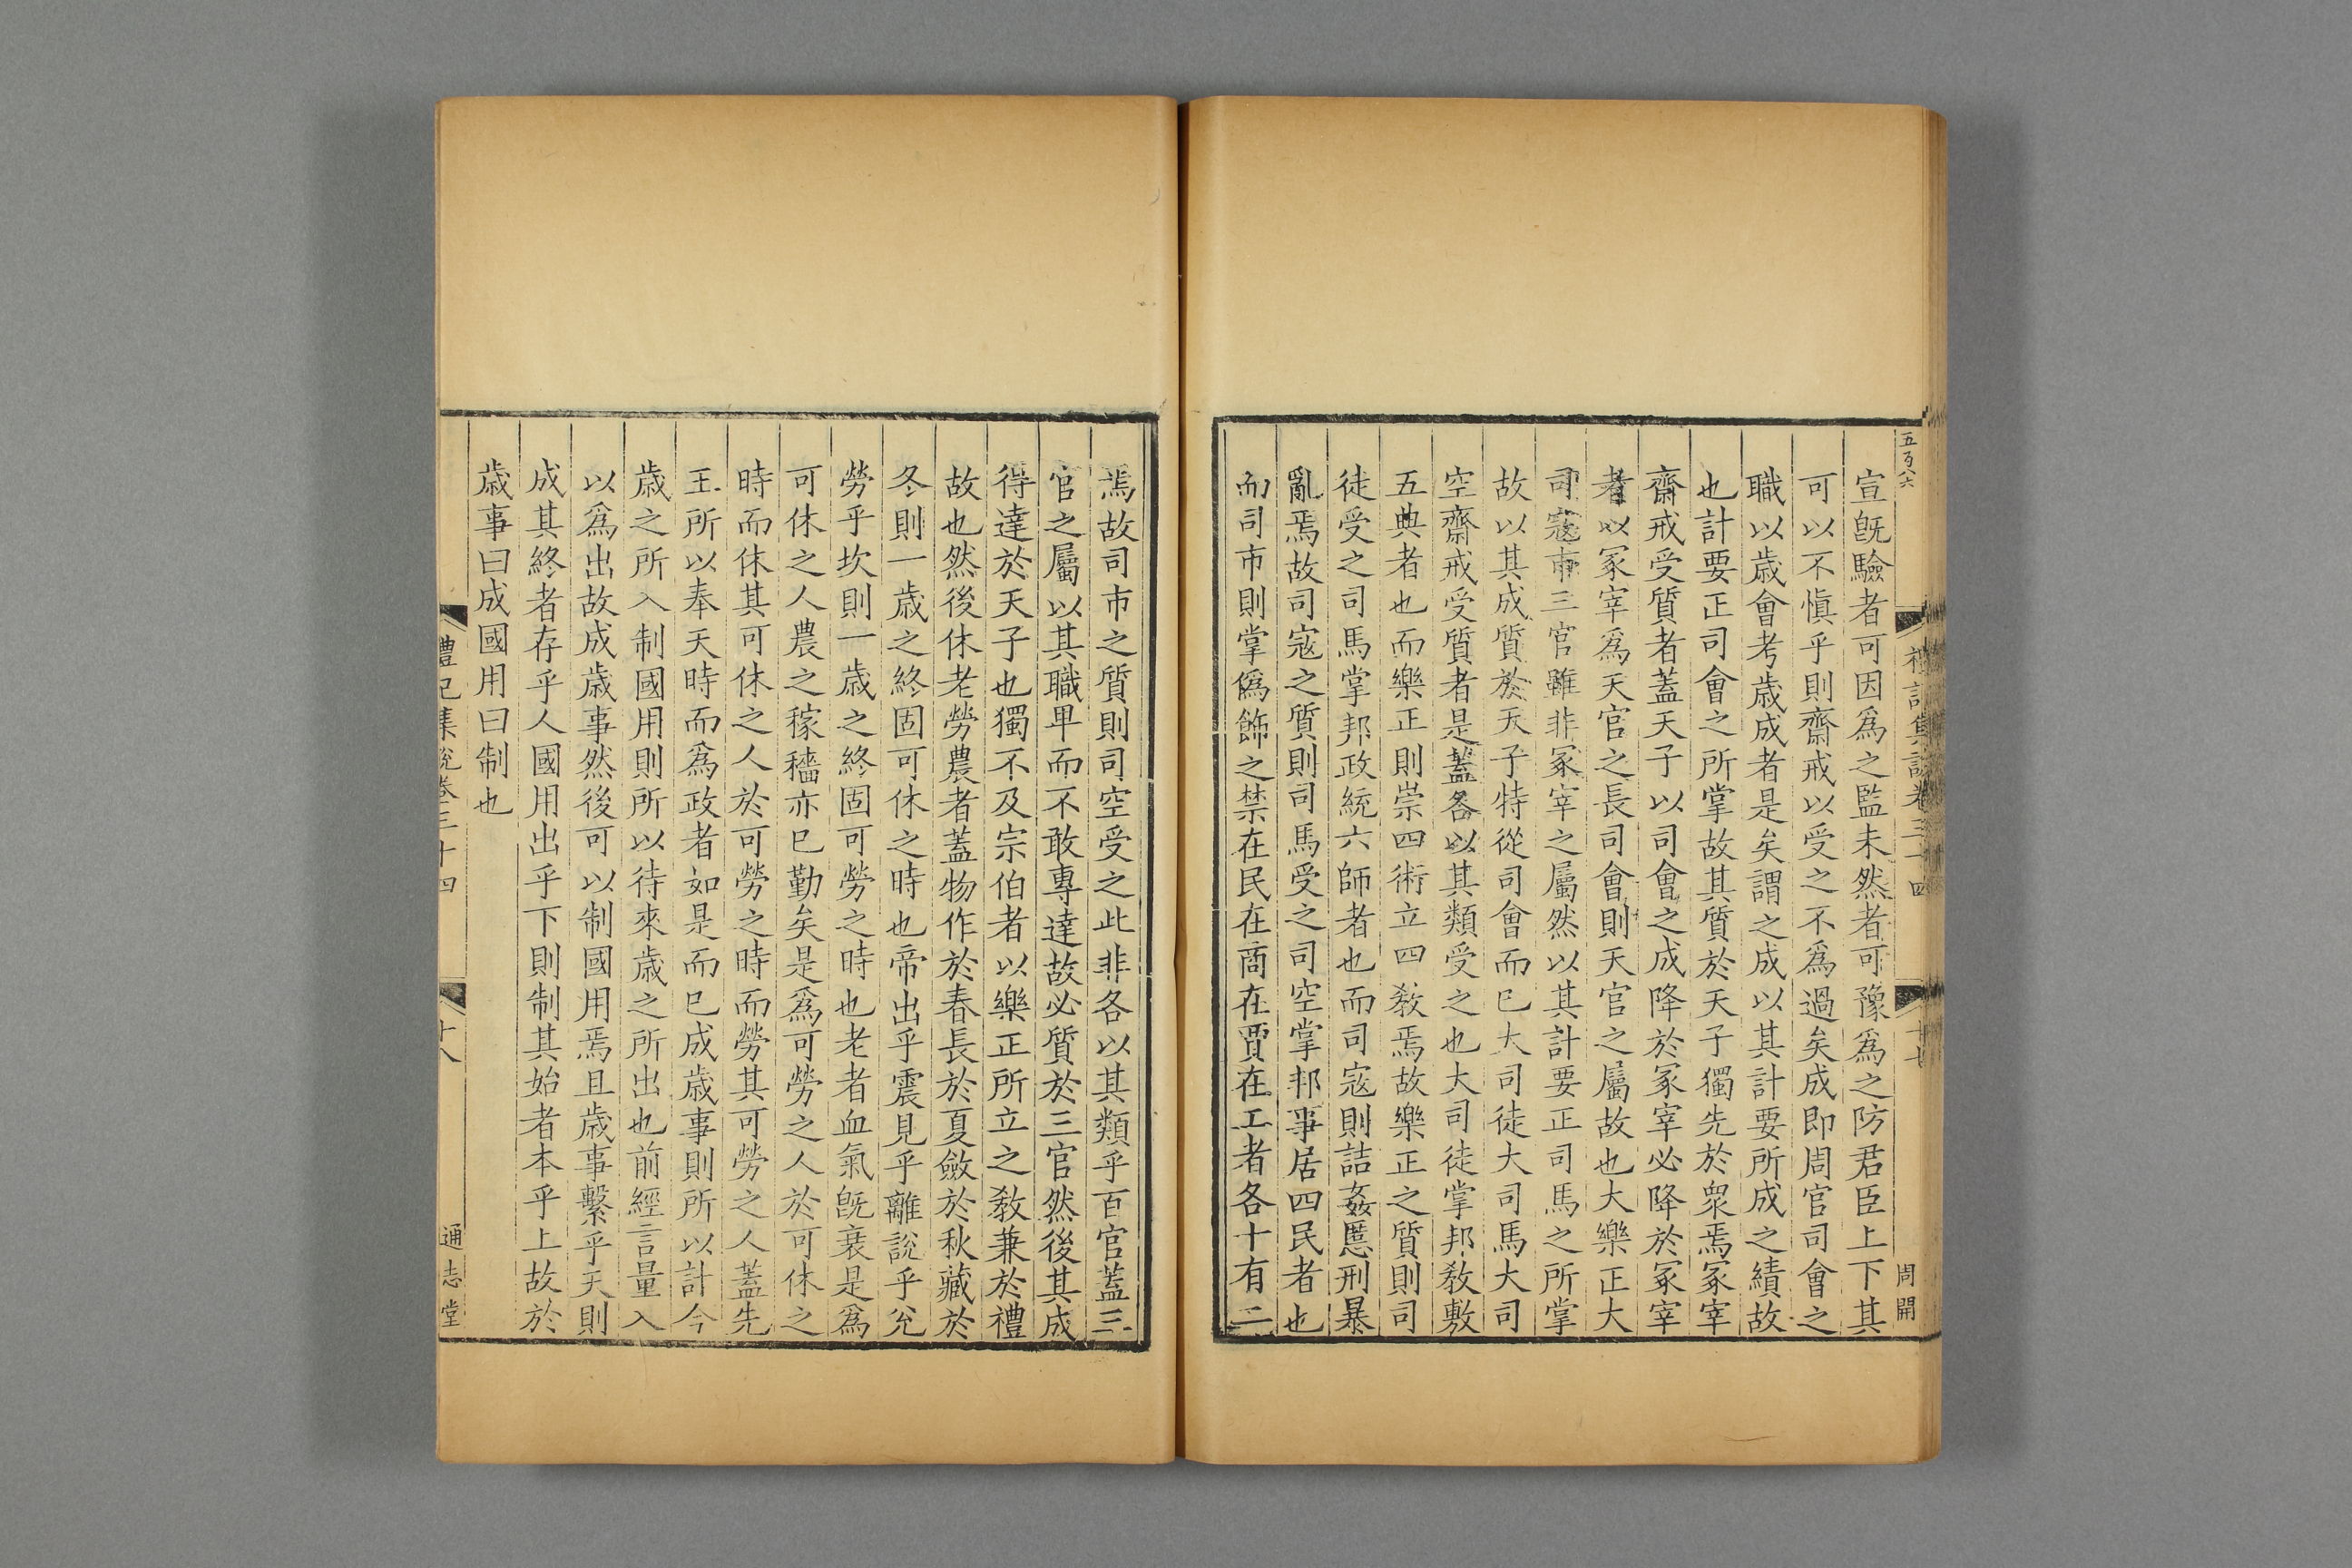 五百八六
禮記集說卷三十四
十七
周開
宣旣驗者可因爲之監未然者可豫爲之防君臣上下其
可以不愼乎則齋戒以受之不爲過矣成即周官司會之
職以歲會考歲成者是矣謂之成以其計要所成之績故
也計要正司會之所掌故其質於天子獨先於衆焉冢宰
齋戒受質者蓋天子以司會之成降於冢宰必降於冢宰
者以冢宰爲天官之長司會則天官之屬故也大樂正大
司寇市三官雖非冢宰之屬然以其計要正司馬之所掌
故以其成質於天子特從司會而巳大司徒大司馬大司
空齋戒受質者是蓋各以其類受之也大司徒掌邦敎敷
五典者也而樂正則崇四術立四敎焉故樂正之質則司
徒受之司馬掌邦政統六師者也而司寇則詰姦慝刑暴
亂焉故司寇之質則司馬受之司空掌邦事居四民者也
而司市則掌僞飾之禁在民在商在賈在工者各十有二
焉故司市之質則司空受之此非各以其類乎百官蓋三
官之屬以其職卑而不敢專達故必質於三官然後其成
得達於天子也獨不及宗伯者以樂正所立之敎兼於禮
故也然後休老勞農者蓋物作於春長於夏斂於秋藏於
冬則一歲之終固可休之時也帝出乎震見乎離說乎兊
勞乎坎則一歲之終固可勞之時也老者血氣旣衰是爲
可休之人農之稼穡亦巳勤矣是爲可勞之人於可休之
時而休其可休之人於可勞之時而勞其可勞之人蓋先
王所以奉天時而爲政者如是而巳成歲事則所以計今
歲之所入制國用則所以待來歲之所出也前經言量入
以爲出故成歲事然後可以制國用焉且歲事繫乎天則
成其終者存乎人國用出乎下則制其始者本乎上故於
歲事曰成國用曰制也
禮記集說卷三十四
十八
通志堂